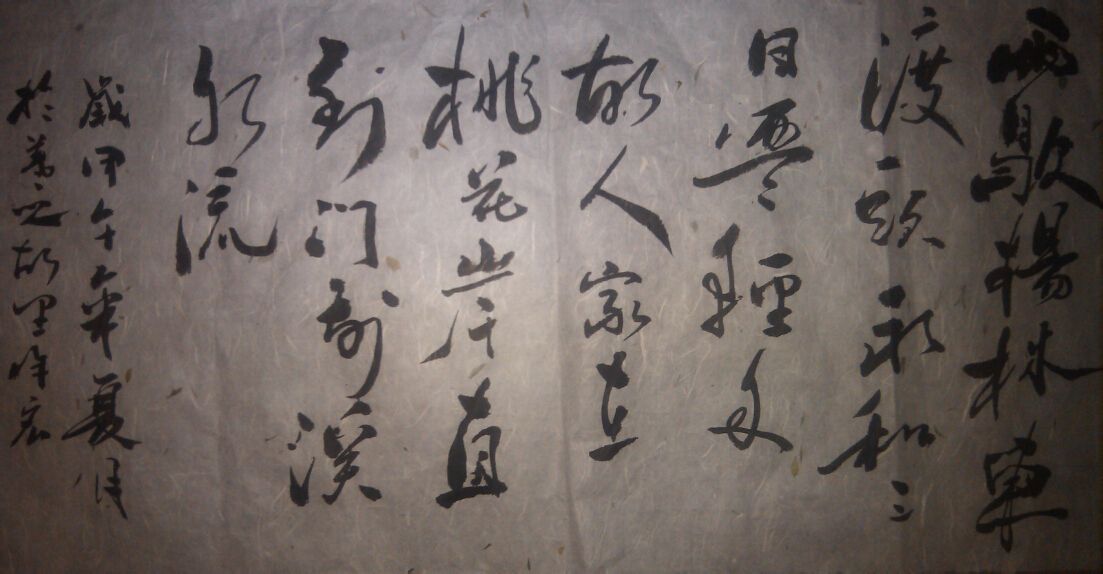 雨歇楊林東
渡頭永和三
日盪輕舟
故人家在
桃花岸直
到門前溪
水流
歲甲午年夏月
於羲之故里宏